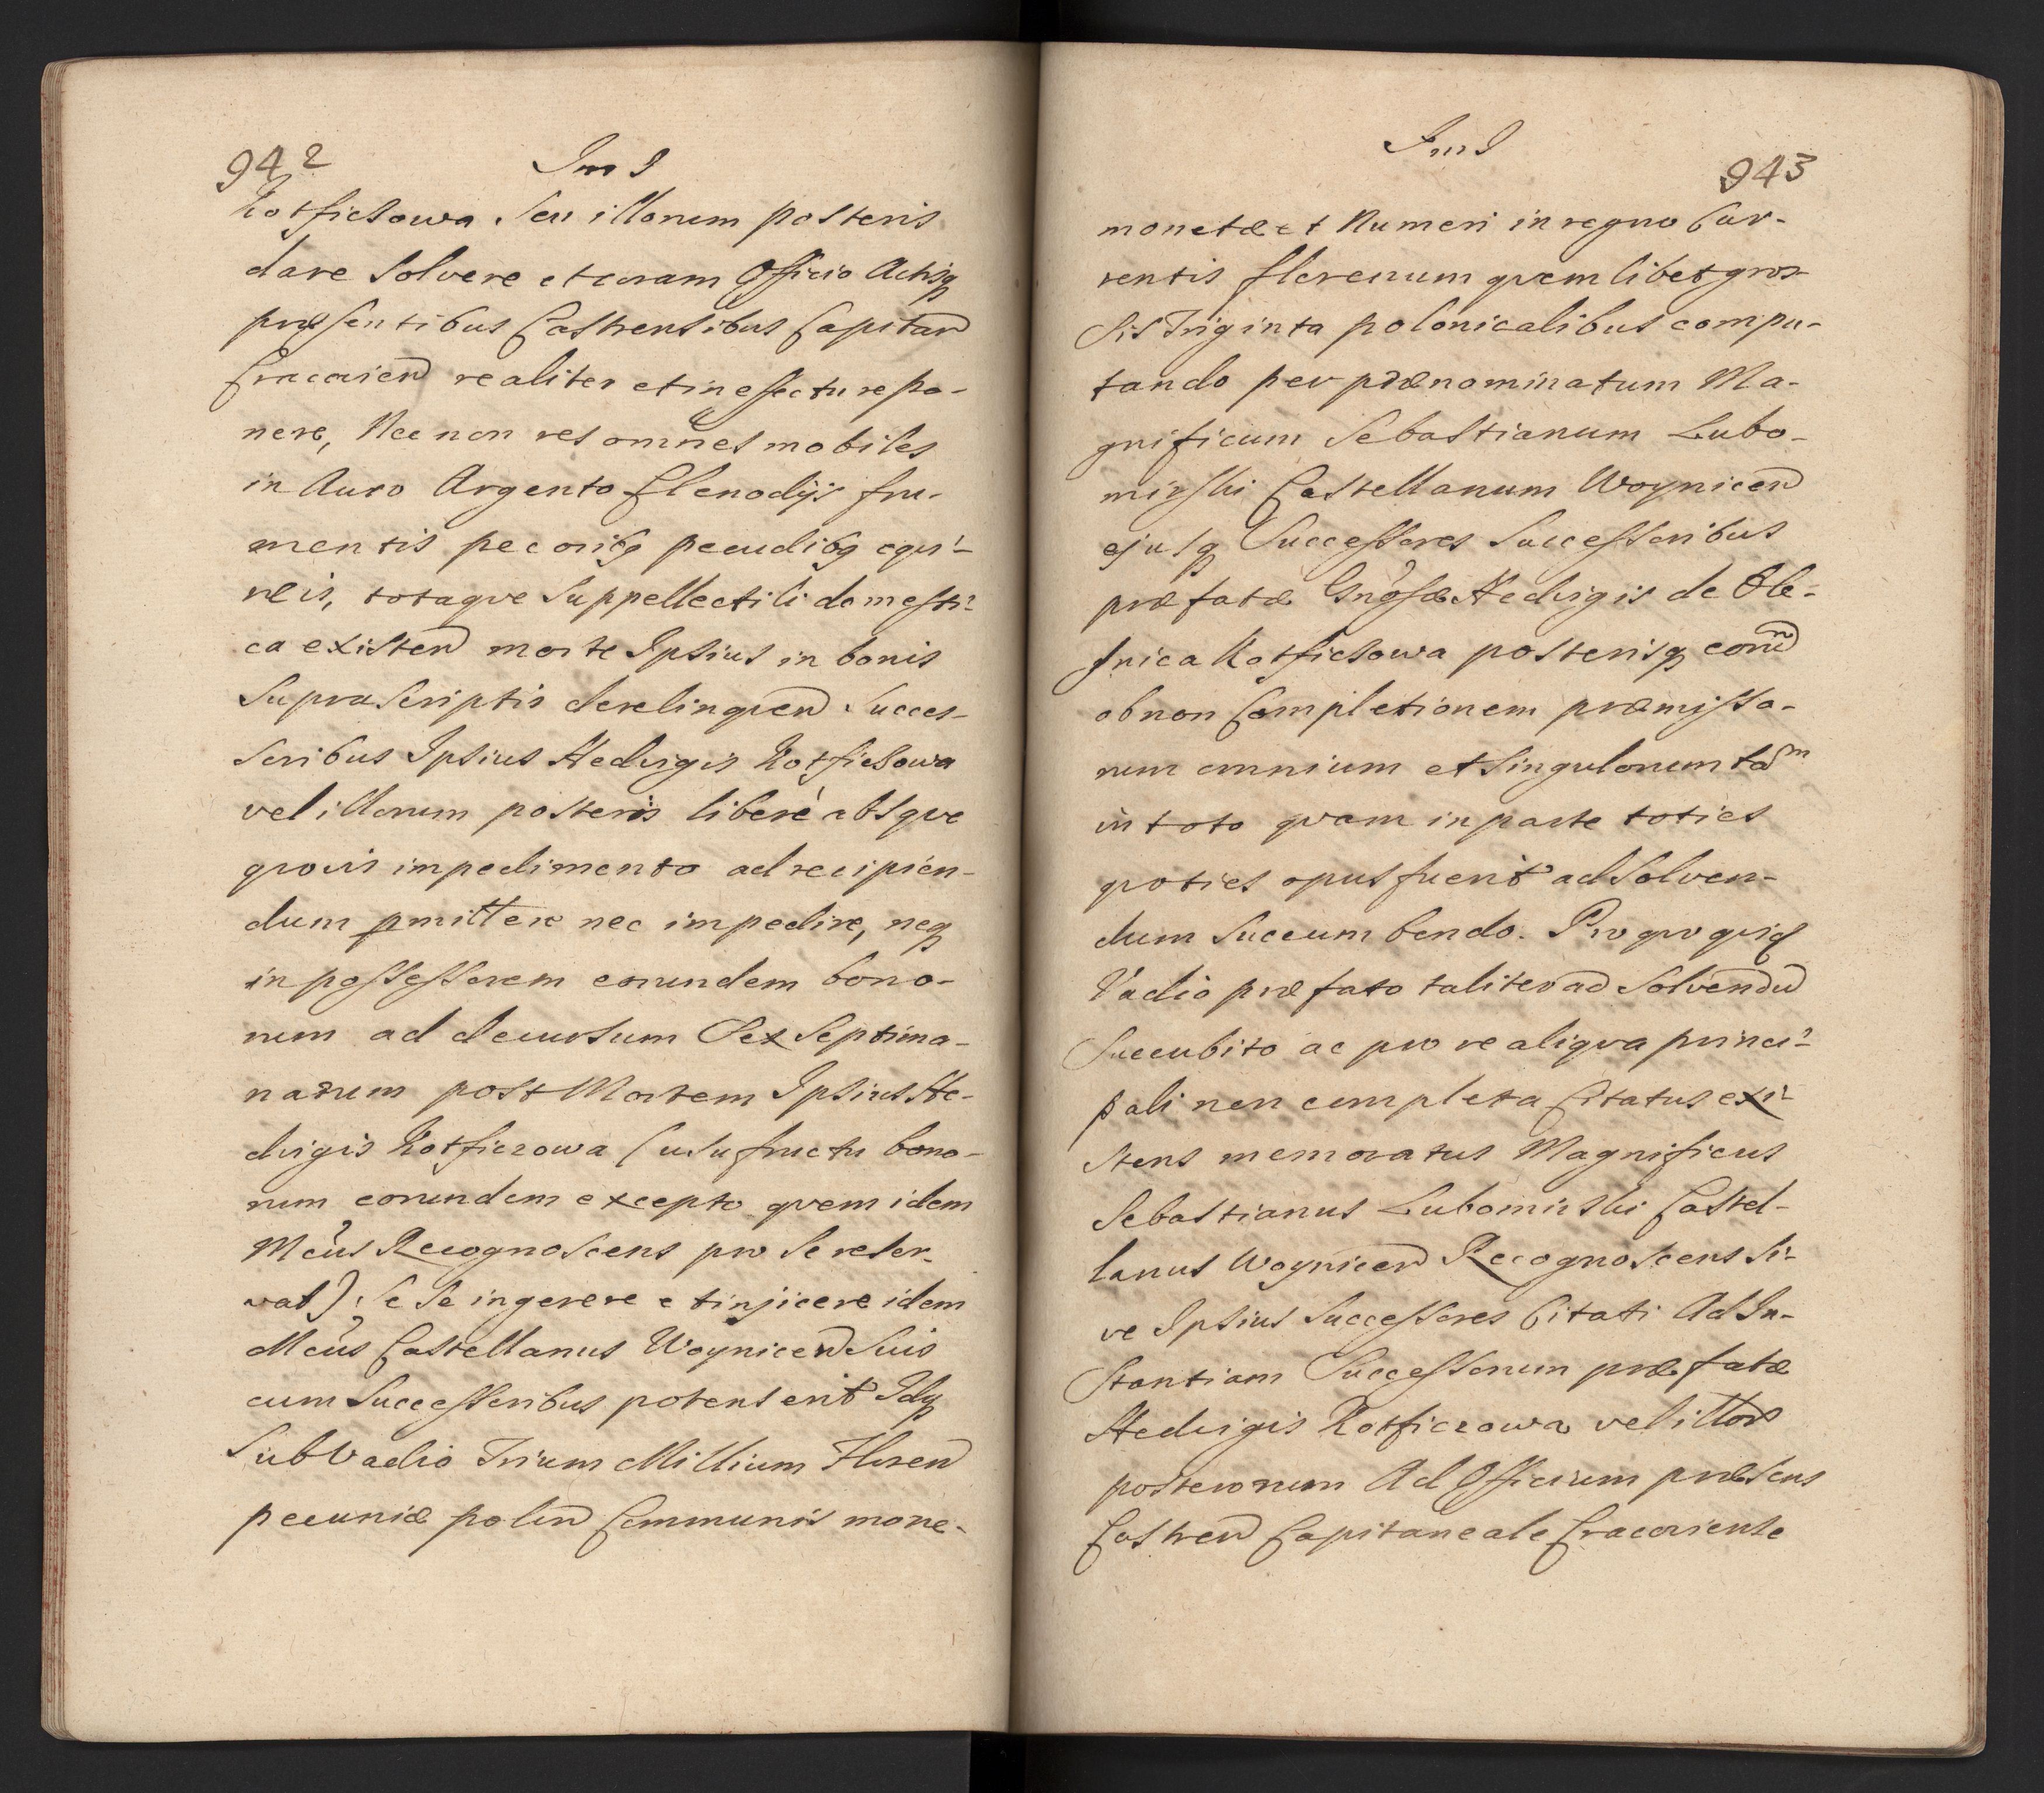 942
Kotficsowa Seu illorum posteris
dare Solvere et coram Officio Actisq
præsentibus Castrensibus Capitan
Cracovien realiter et in effectu repo-
nere, Nec non res omnes mobiles
in Auro Argento Clenodijs fru-
mentis pecoribq pecudibq equi-
reis, totaque Suppellectili domesti-
ca existen morte Ipsius in bonis
Suprascriptis derelinquen Succes-
soribus Ipsius Hedvigis Kotficsowa
vel illorum posteris liberè absque
quovis impedimento ad recipien-
dum pmittere nec impedire, neq
in possessorem eorundem bono-
rum ad decursum Sex Septima-
narum post Mortem Ipsius He-
dvigis Kotficzowa (usufructu bono-
rum eorundem excepto quem idem
Mcus Recognoscens pro Se reser-
vat). Se Se ingerere et injicere idem
Mcus Castellanus Woynicen Suis
cum Successoribus potens erit Idq
Sub Vadio Trium Millium Floren
pecuniæ polon Communis mone-
943
monetæ et Numeri in regno Cur-
rentis florenum quemlibet gros-
sis Triginta polonicalibus compu-
tando per prænominatum Ma-
gnificum Sebastianum Lubo-
mirski Castellanum Woynicen
ejusq Successores Successoribus
præfatæ Gnosæ Hedvigis de Ole-
snica Kotficsowa posterisq eorund
ob non Completionem præmissa-
rum omnium et Singulorum tam
in toto quam in parte toties
quoties opus fuerit ad Solven-
dum Succumbendo. Pro quo quid
Vadio præfato taliter ad Solvendu
Succubito ac pro re aliqva princi-
pali non completa Citatus exi-
stens memoratus Magnificus
Sebastianus Lubomirski Castel-
lanus Woynicen Recognoscens Si-
ve Ipsius Successores Citati Ad In-
Stantiam Successorum præfatæ
Hedvigis Kotficzowa vel illor
posterorum Ad Officium præsens
Castren Capitaneale Cracoviense